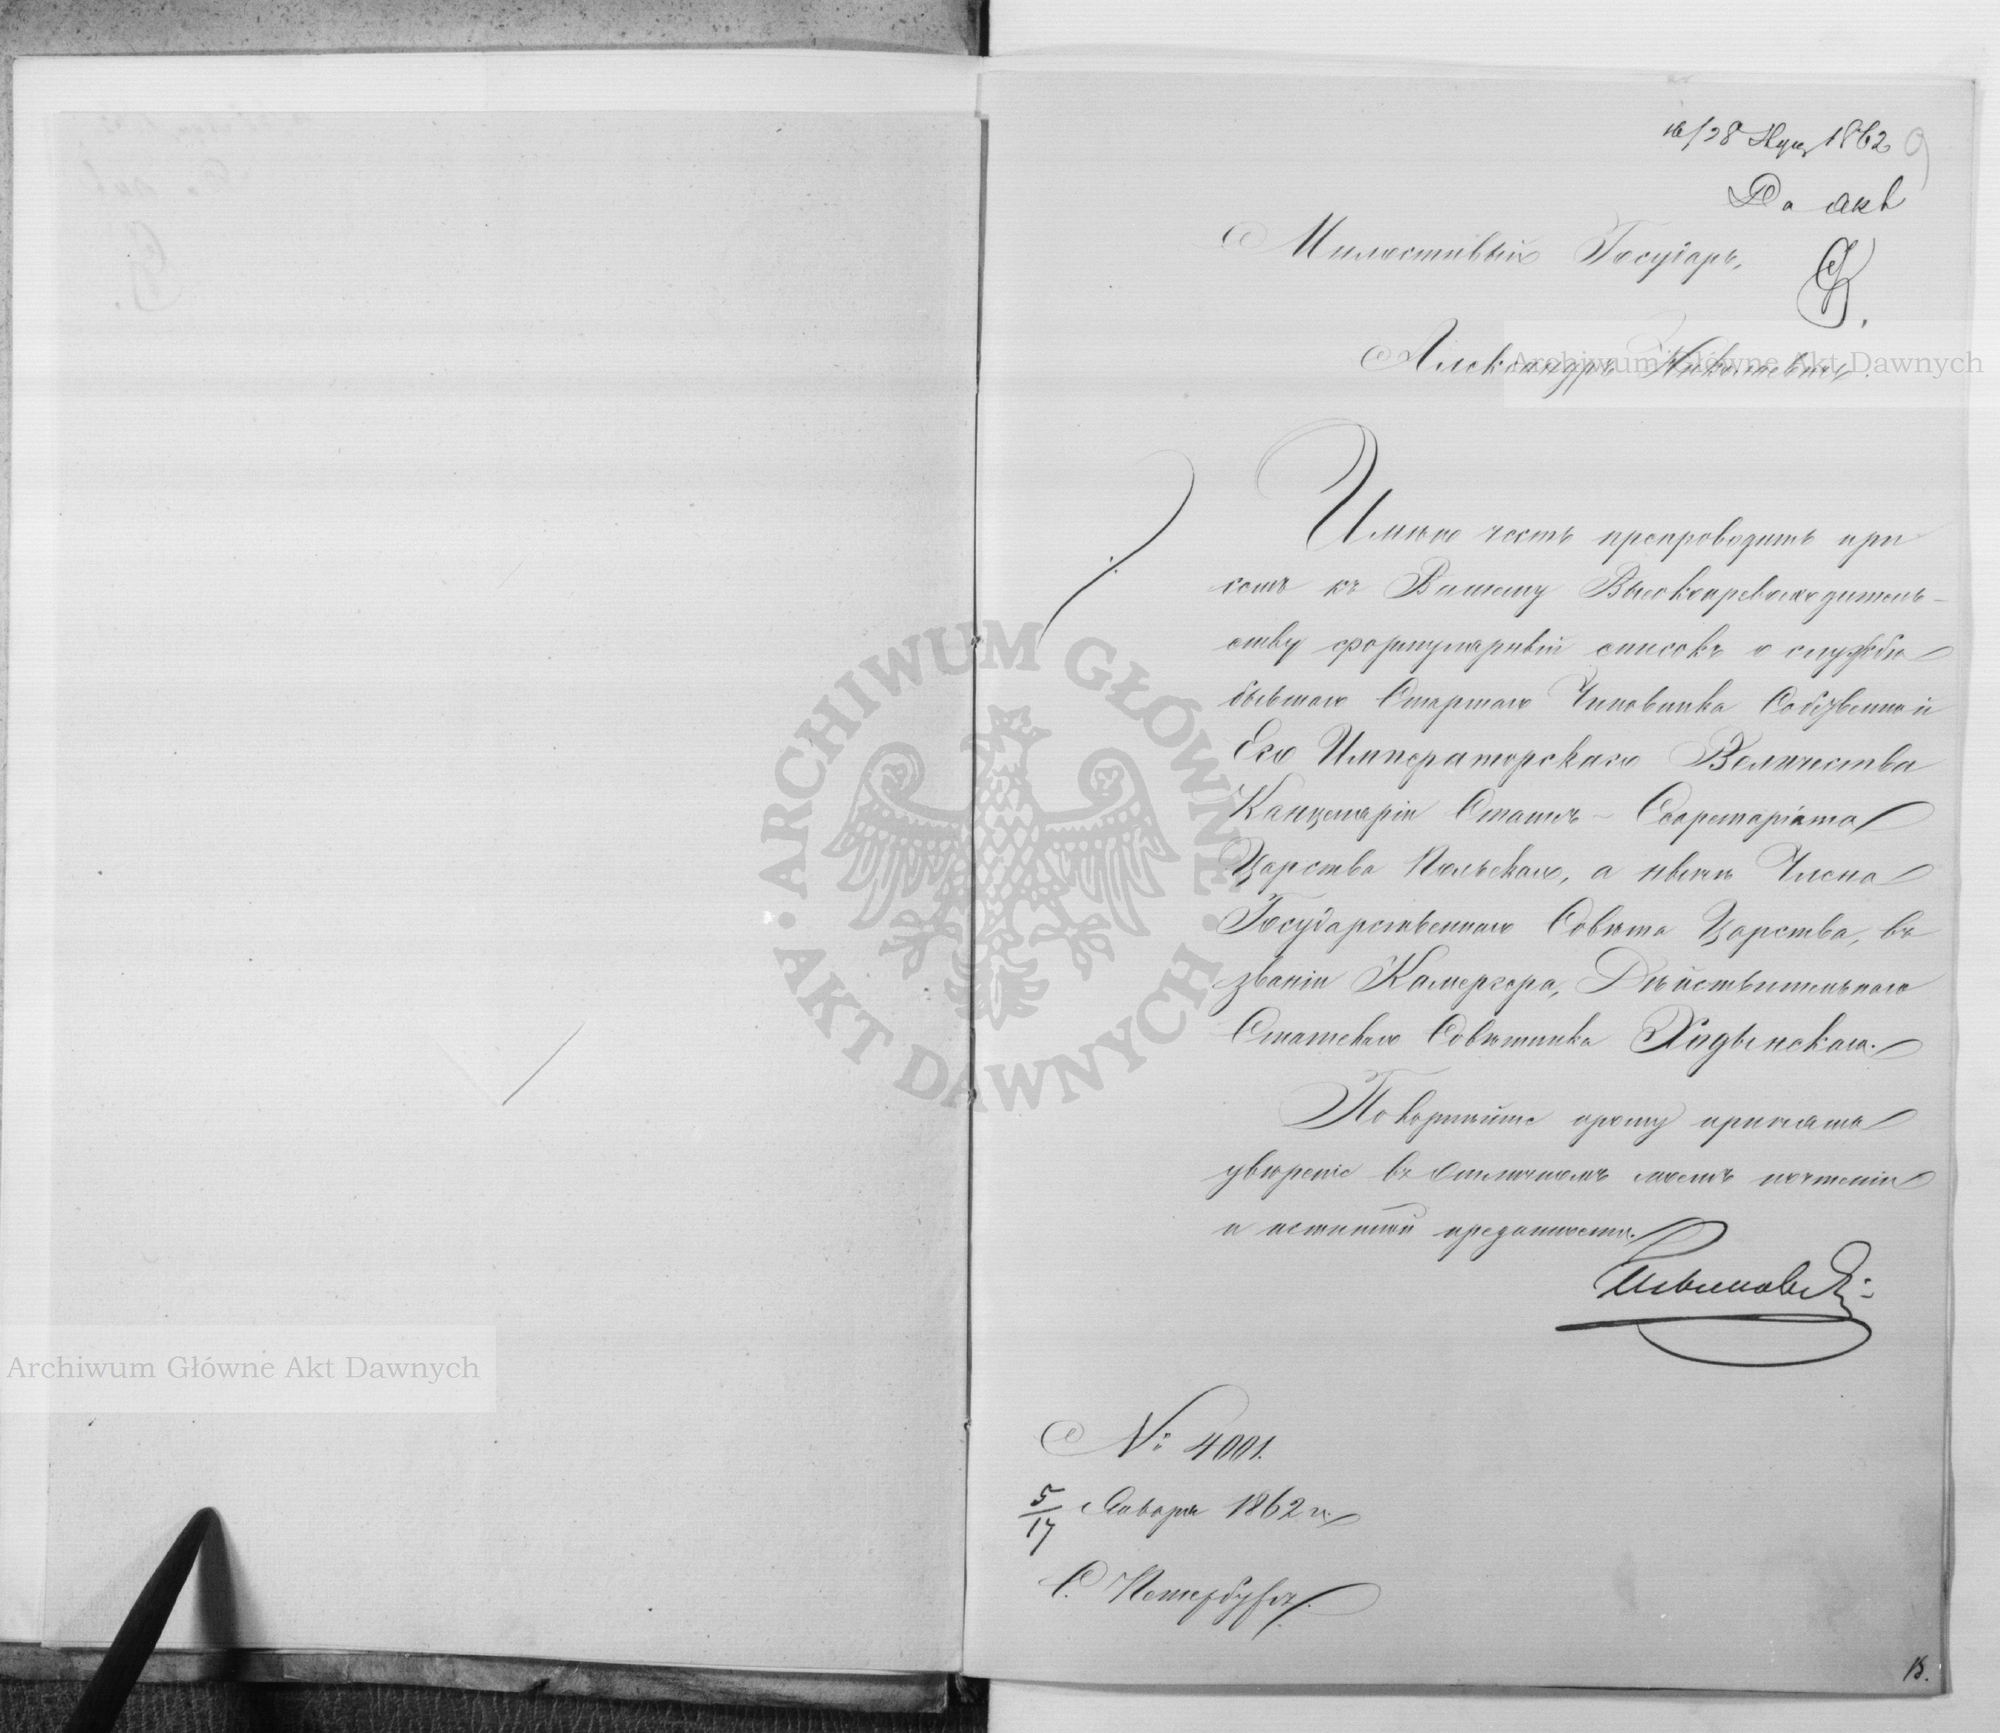 16/28 Янв. 1862
9
Do akt
Милостивый Государь,
Александръ Николаевичъ.
Имѣю честь препроводить при
семъ къ Вашему Высокопревосходитель-
ству формулярный списокъ о службѣ
бывшаго Старшаго Чиновника Собственной
Его Императорскаго Величества
Канцеляріи Статсъ-Секретаріата
Царства Польскаго, а нынѣ Члена
Государственнаго Совѣта Царства, въ
званіи Камергера, Дѣйствительнаго
Статскаго Совѣтника Хидынскаго.
Покорнѣйше прошу принять
увѣреніе въ отличномъ моемъ почтеніи
и истинной преданности.
№ 4001.
5/17 Января 1862 г.
С. Петербургъ.
Archiwum Główne Akt Dawnych
Archiwum Główne Akt Dawnych
ARCHIWUM GŁÓWNE · AKT DAWNYCH ·